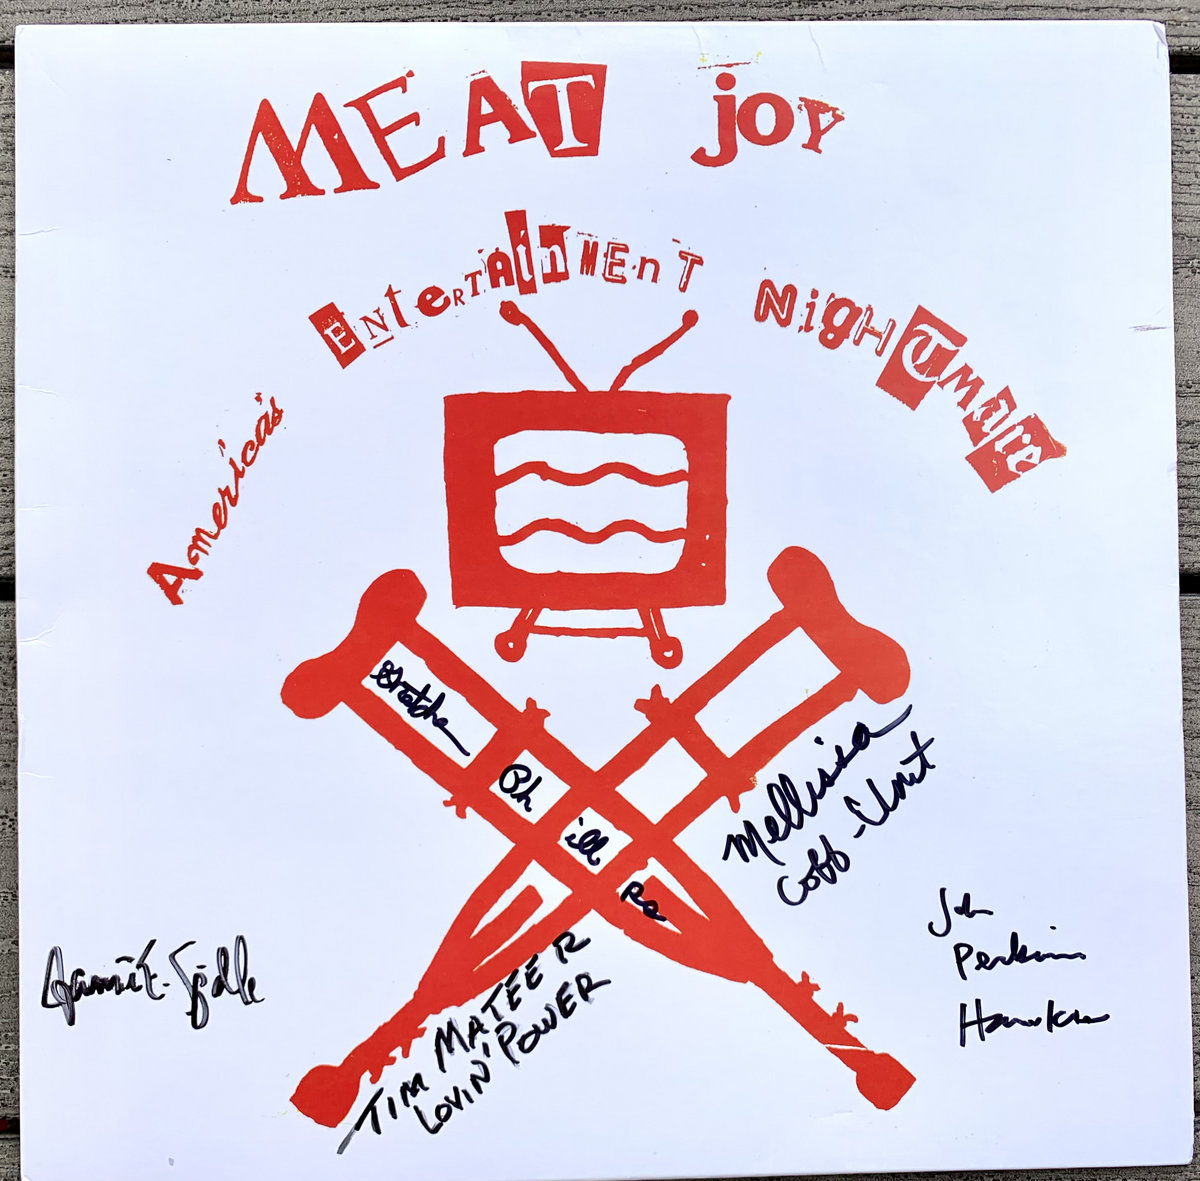 MEAT joy
America's EntertainMEnT NigHTMare
Gretchen
Ph
ill
ps
Mellissa
Cobb-Unit
John
Perkins
Hawkins
Jamie E. Spidle
TIM MATEER
LOVIN' POWER